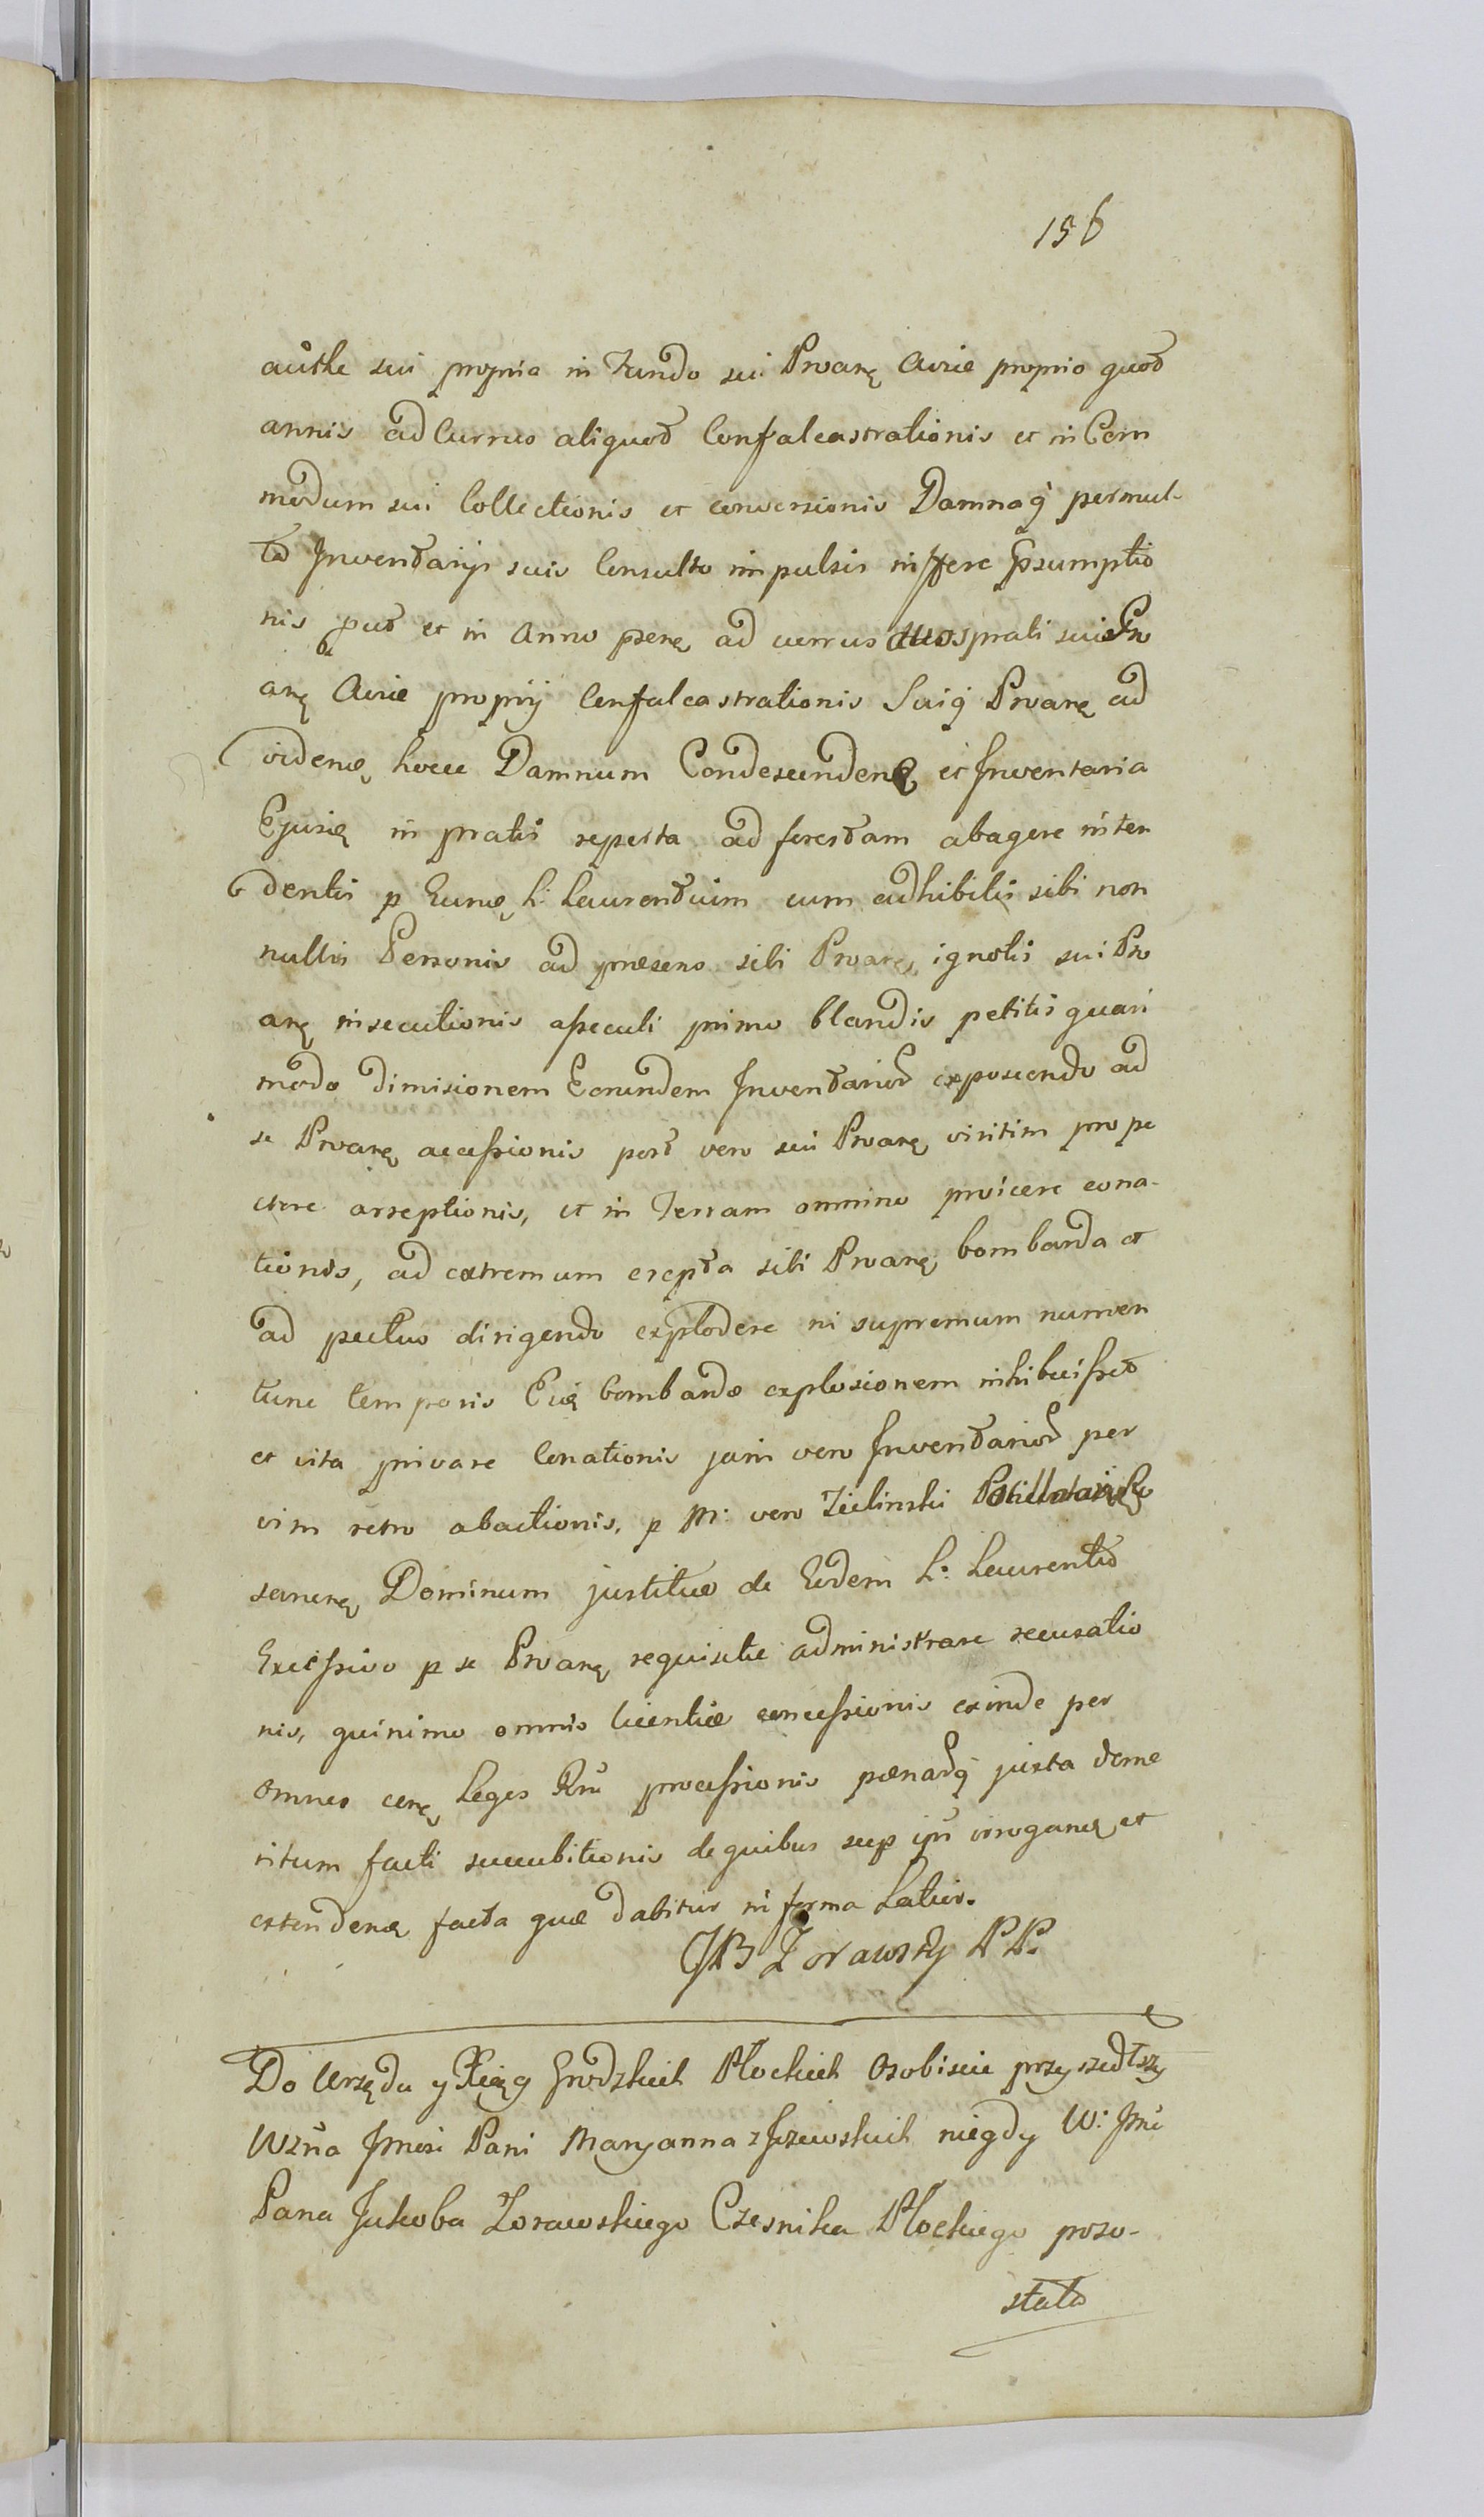 156
authe sui propria in Fundo sui Proarę Aviae proprio quot
annis ad Currus aliquot Confalcastrationis et in Com
modum sui Collectionis et conversionis Damnaq̃ permul-
ta Inventarijs suis Consulto impulsis inferre Psumptio
nis put et in Anno psenę ad currus duos prati sui Pro
arę Aviae proprij Confalcastrationis Suiq̃ Proarę ad
vidend hocce Damnum Condescendenę et Inventaria
Ejusdę in pratis reperta ad forestam abagere inten
dentis p Eund L: Laurentium cum adhibitis sibi non
nullis Personis ad praesens sibi Proarę ignotis sui Pro
arę insecutionis assecuti primo blandis petitis quasi
modo dimisionem Eorundem Inventarior exposcendo ad
se Proarę accessionis post vero sui Proarę viritim pro pe
ctore arreptionis, et in Terram omnino proicere cona-
tionis, ad extremum erepta sibi Proarę bombarda et
ad pectus dirigendo explodere ni supremum numen
tunc temporis Eię bombardae explosionem inhibuisset
et vita privare Conationis jam vero Inventarior per
vim retro abactionis, p M: vero Zielinski
Dominum justitiae de Eodem L: Laurentio
Excessivo p se Proarę requisitae administrare recusatio
nis, quinimo omnis licentiae concessionis exinde per
omnes cerę Leges Rni processionis paenarq̃ juxta deme
ritum facti succubitionis de quibus sup ipm irrogand et
extendend facta quae dabitur in forma Latior.
JB Zorawsky PP.
Do Urzędu y Xięg Grodzkich Płockich Osobiscie przyszedłszy
Wzna Jmsci Pani Maryanna z Jezewskich niegdy W: Jmci
Pana Jakoba Zorawskiego Czesnika Płockiego pozo-
stała